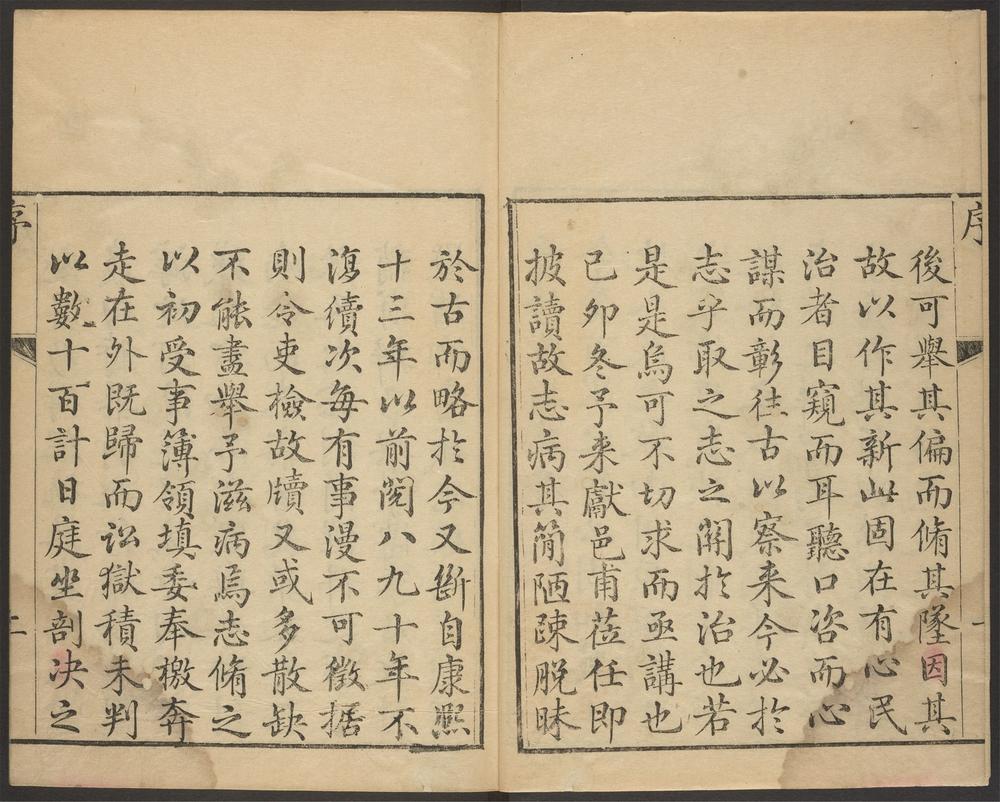 序
一
後可舉其偏而脩其墜因其
故以作其新此固在有心民
治者目窺而耳聽口咨而心
謀而彰往古以察来今必於
志乎取之志之關扵治也若
是是烏可不切求而亟講也
己夘冬予来獻邑甫莅任即
披讀故志病其簡陋踈脱昧
於古而略扵今又斷自康熙
十三年以前閲八九十年不
復續次每有事漫不可徴据
則令吏檢故牘又或多散缺
不能盡舉予滋病焉志脩之
以初受事簿領填委奉檄奔
走在外既歸而訟獄積未判
以數十百計日庭坐剖决之
序
二